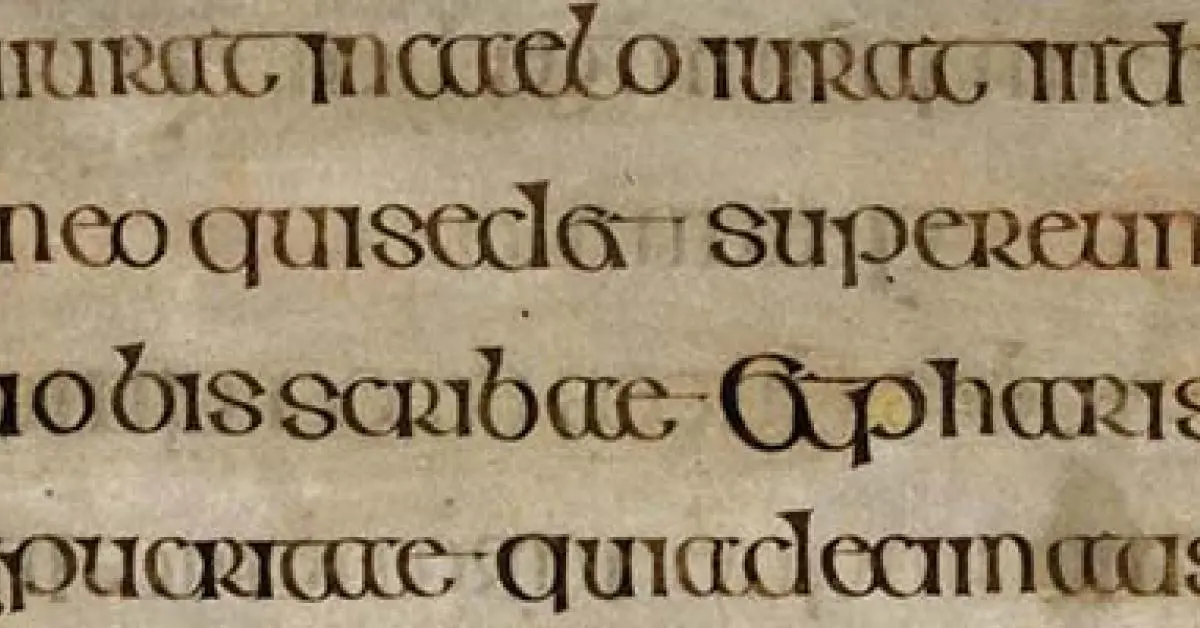 iurat in caelo iurat inth
neo quisedet supereum
uobis scribae et pharis
pucritae quiadecimatis